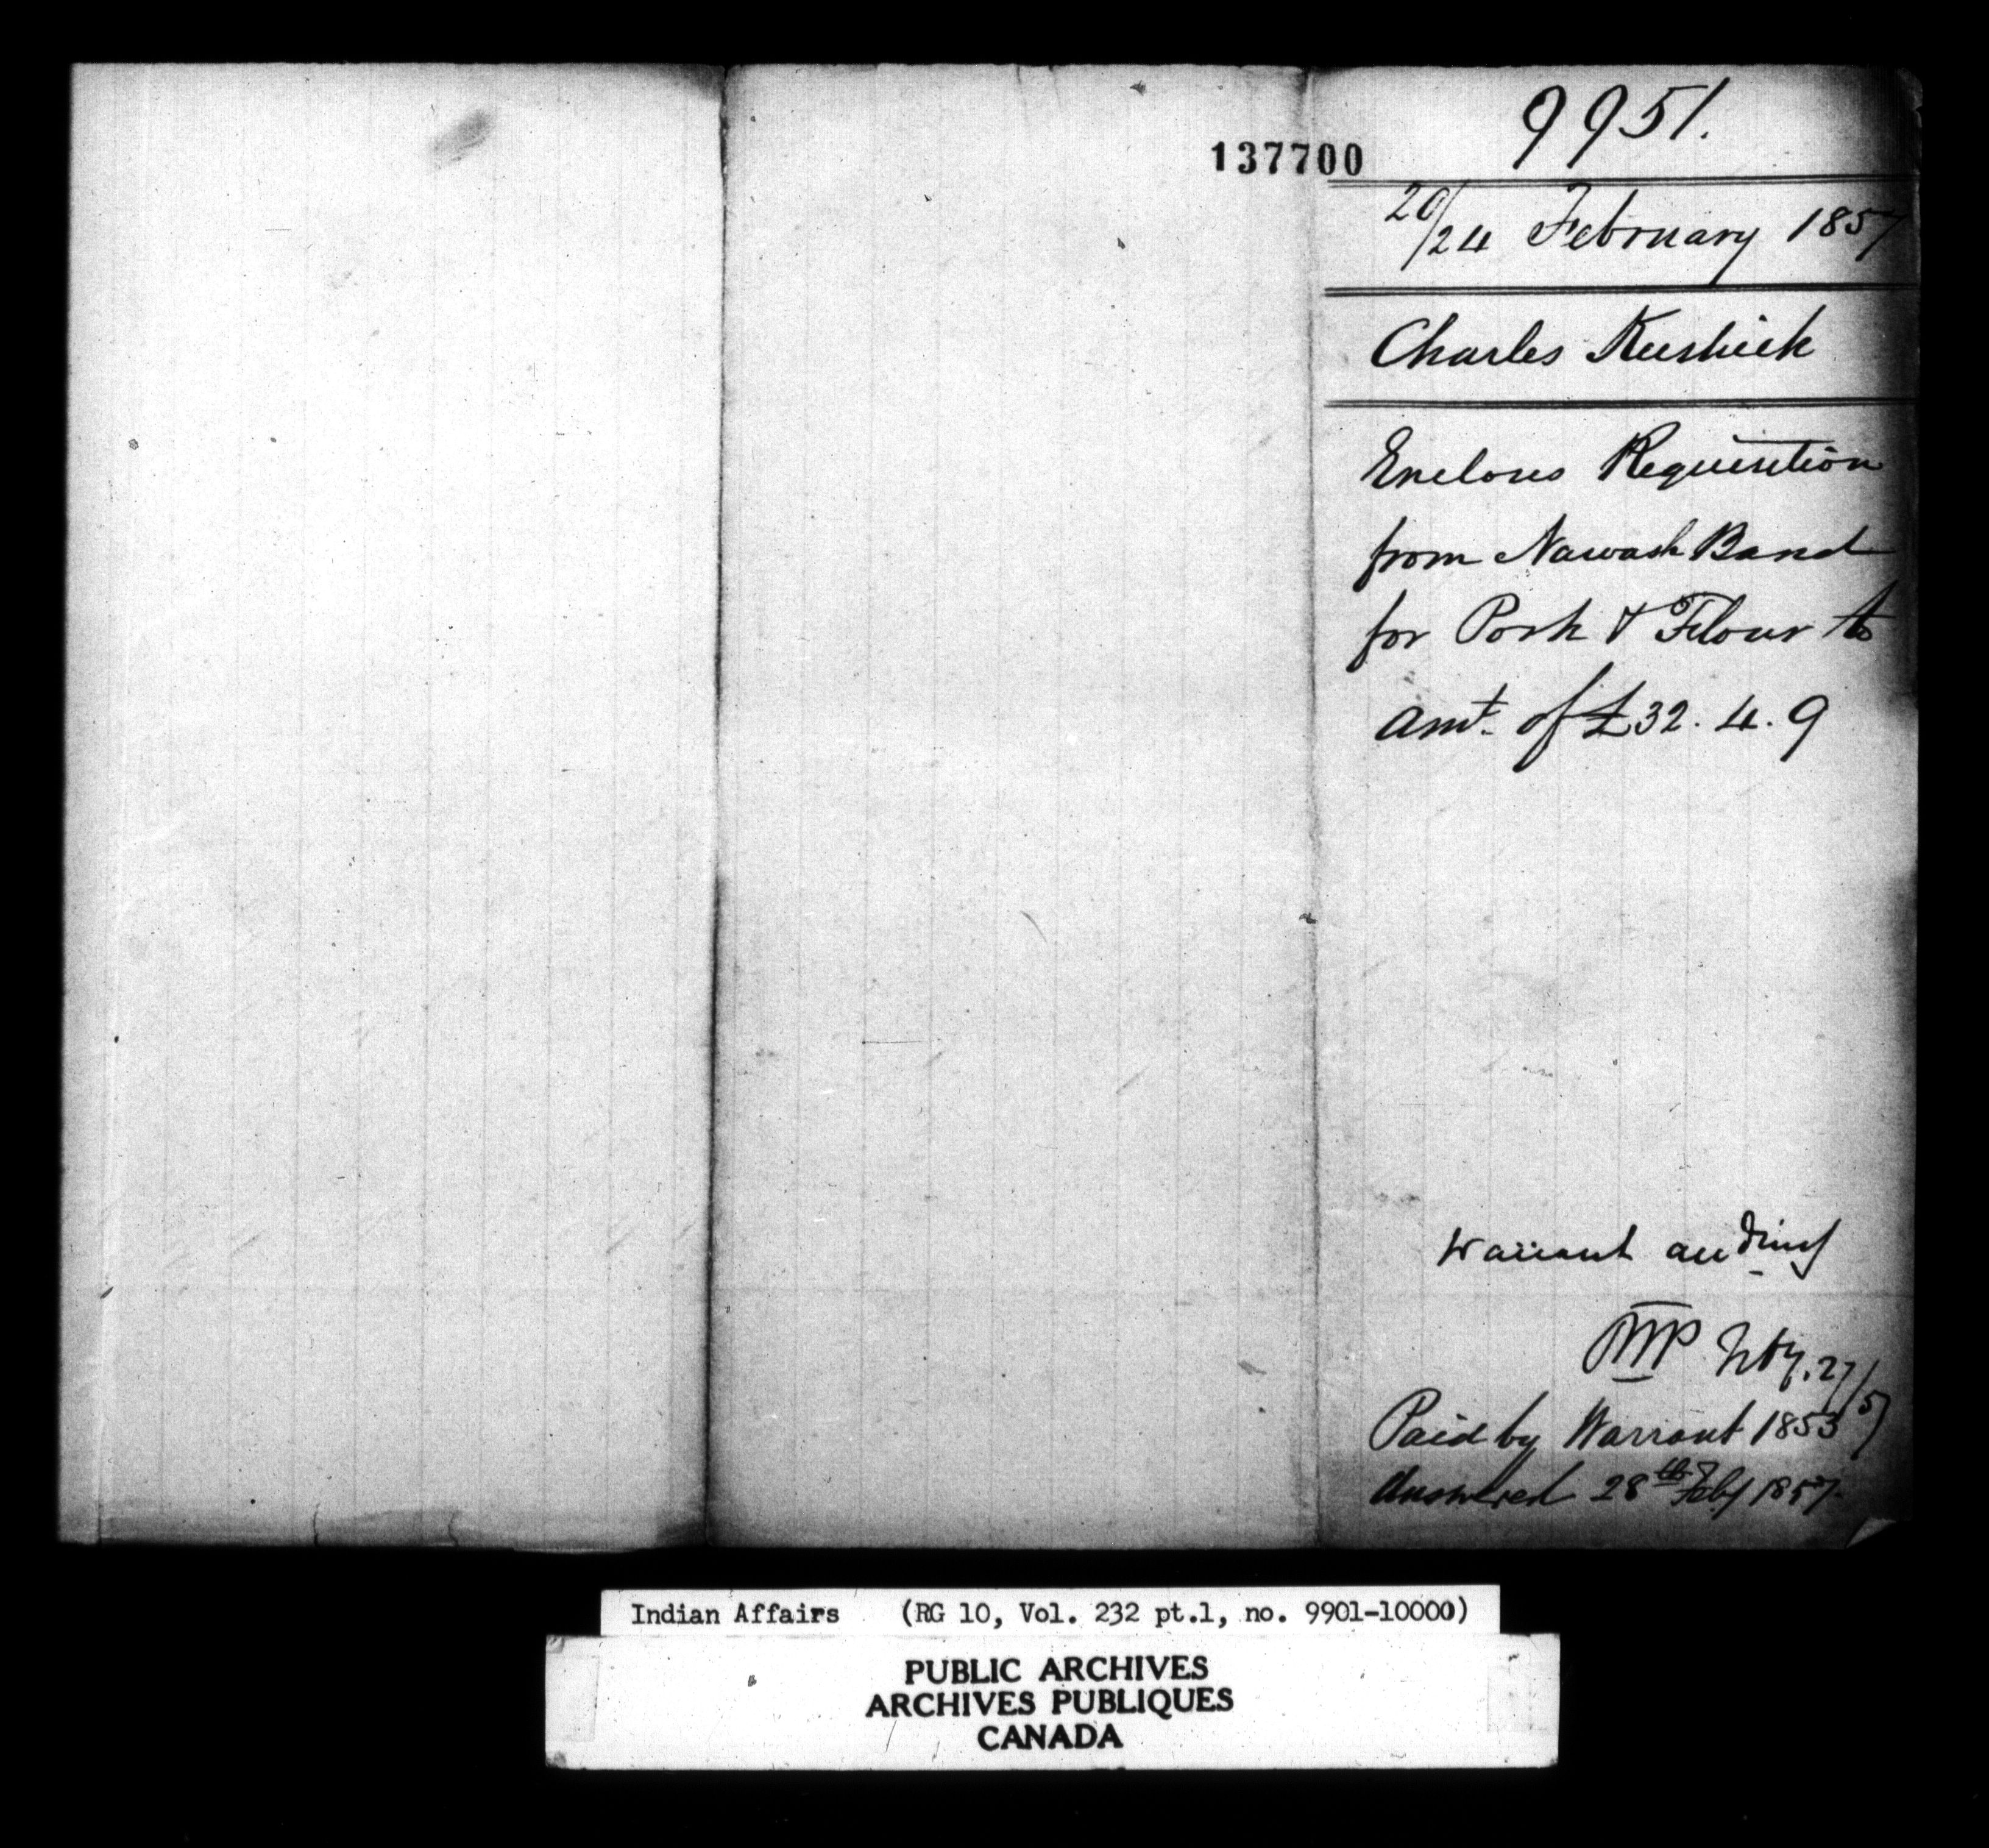 9951.
137700
20/24 February 1857
Charles Keeshick
Encloses Requisition
from Nawash Band
for Pork & Flour to
amt. of £32. 4. 9
Warrant
Feby. 27/57
Paid by Warrant 1853
Answered 28th Feby 1857.
Indian Affairs (RG 10, Vol. 232 pt.1, no. 9901-10000)
PUBLIC ARCHIVES
ARCHIVES PUBLIQUES
CANADA